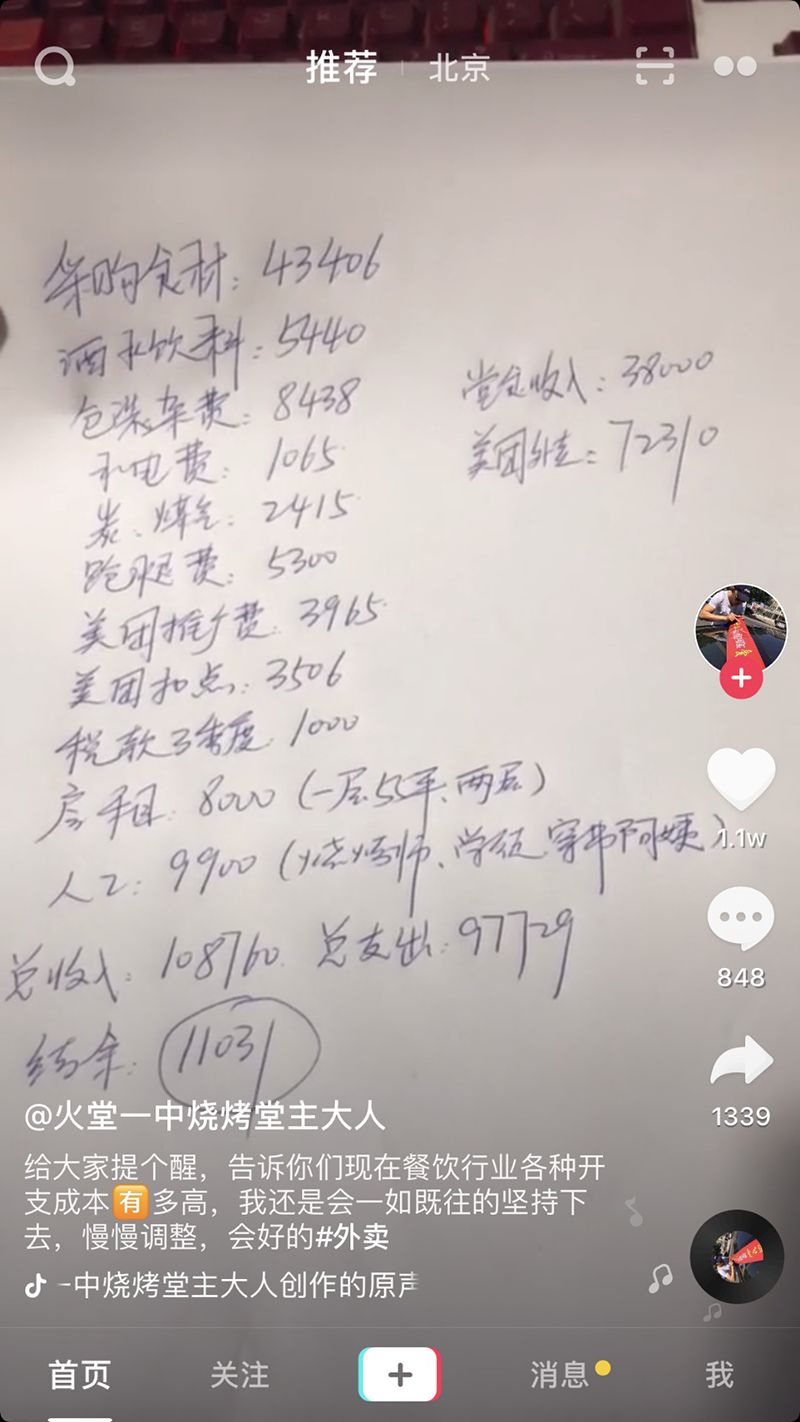 推荐 北京
采购食材：43406
酒水饮料：5440
包装杂费：8438
水电费：1065
炭、煤气：2415
跑腿费：5300
美团推广费：3965
美团扣点：3506
税款3季度：1000
房租：8000（一层55平、两层）
人工：9900（烧烤师、学徒、穿串阿姨）
堂食收入：38000
美团外卖：72310
总收入：108760 总支出：97729
结余：11031
1.1w
848
1339
@火堂一中烧烤堂主大人
给大家提个醒，告诉你们现在餐饮行业各种开
支成本🈶多高，我还是会一如既往的坚持下
去，慢慢调整，会好的#外卖
一中烧烤堂主大人创作的原声
首页 关注 消息 我